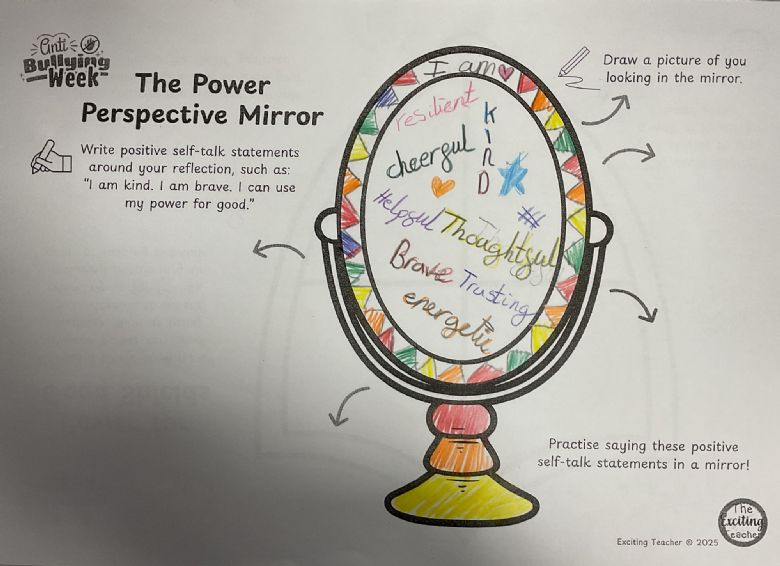 Anti
Bullying
Week
The Power
Perspective Mirror
Write positive self-talk statements
around your reflection, such as:
"I am kind. I am brave. I can use
my power for good."
I am
resilient
KIND
cheerful
Helpful Thoughtful
Brave Trusting
energetic
Draw a picture of you
looking in the mirror.
Practise saying these positive
self-talk statements in a mirror!
Exciting Teacher © 2025
The
Exciting
Teacher